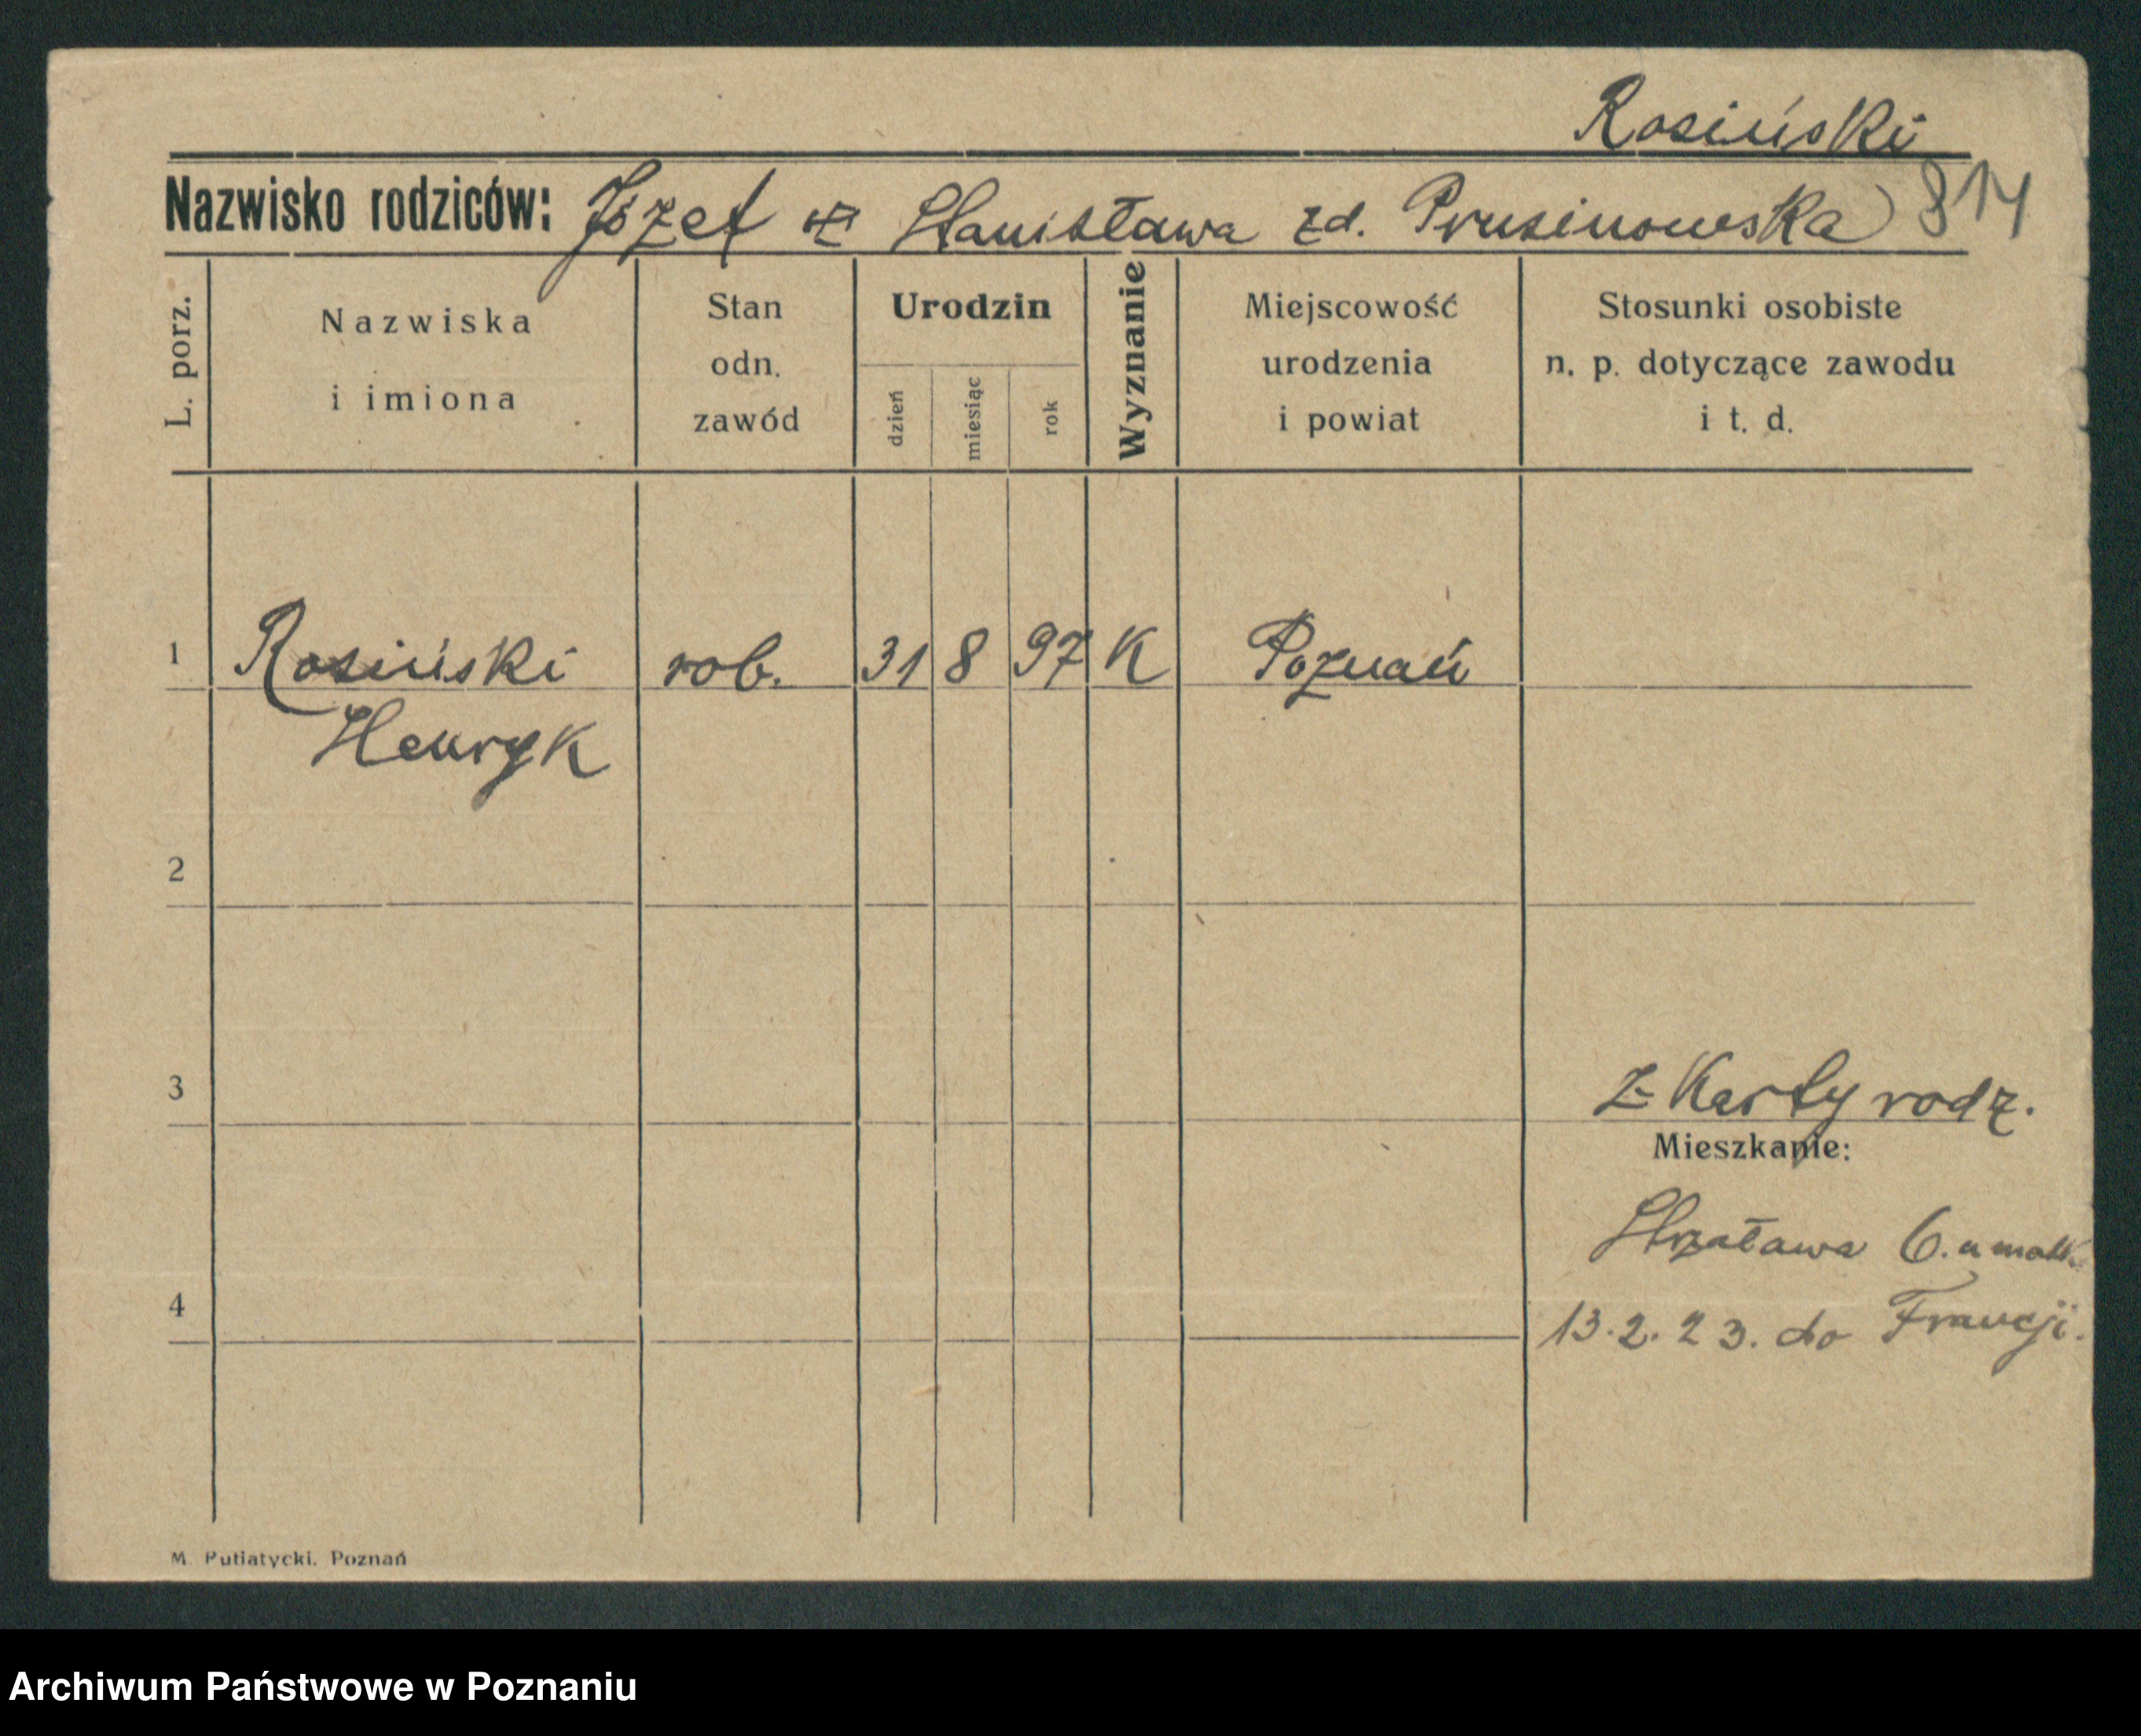 Rosiński
Nazwisko rodziców: Józef Stanisława zd. Prusinowska 814
L. porz.
Nazwiska
i imiona
Stan
odn.
zawód
Urodzin
dzień
miesiąc
rok
Wyznanie
Miejscowość
urodzenia
i powiat
Stosunki osobiste
n. p. dotyczące zawodu
i t. d.
1 Rosiński rob. 31 8 97 K Poznań
Henryk
2
3
z Karty rodz.
Mieszkanie:
Strzałowa 6. u matk.
4
13.2.23. do Francji.
M. Putiatycki. Poznań
Archiwum Państwowe w Poznaniu